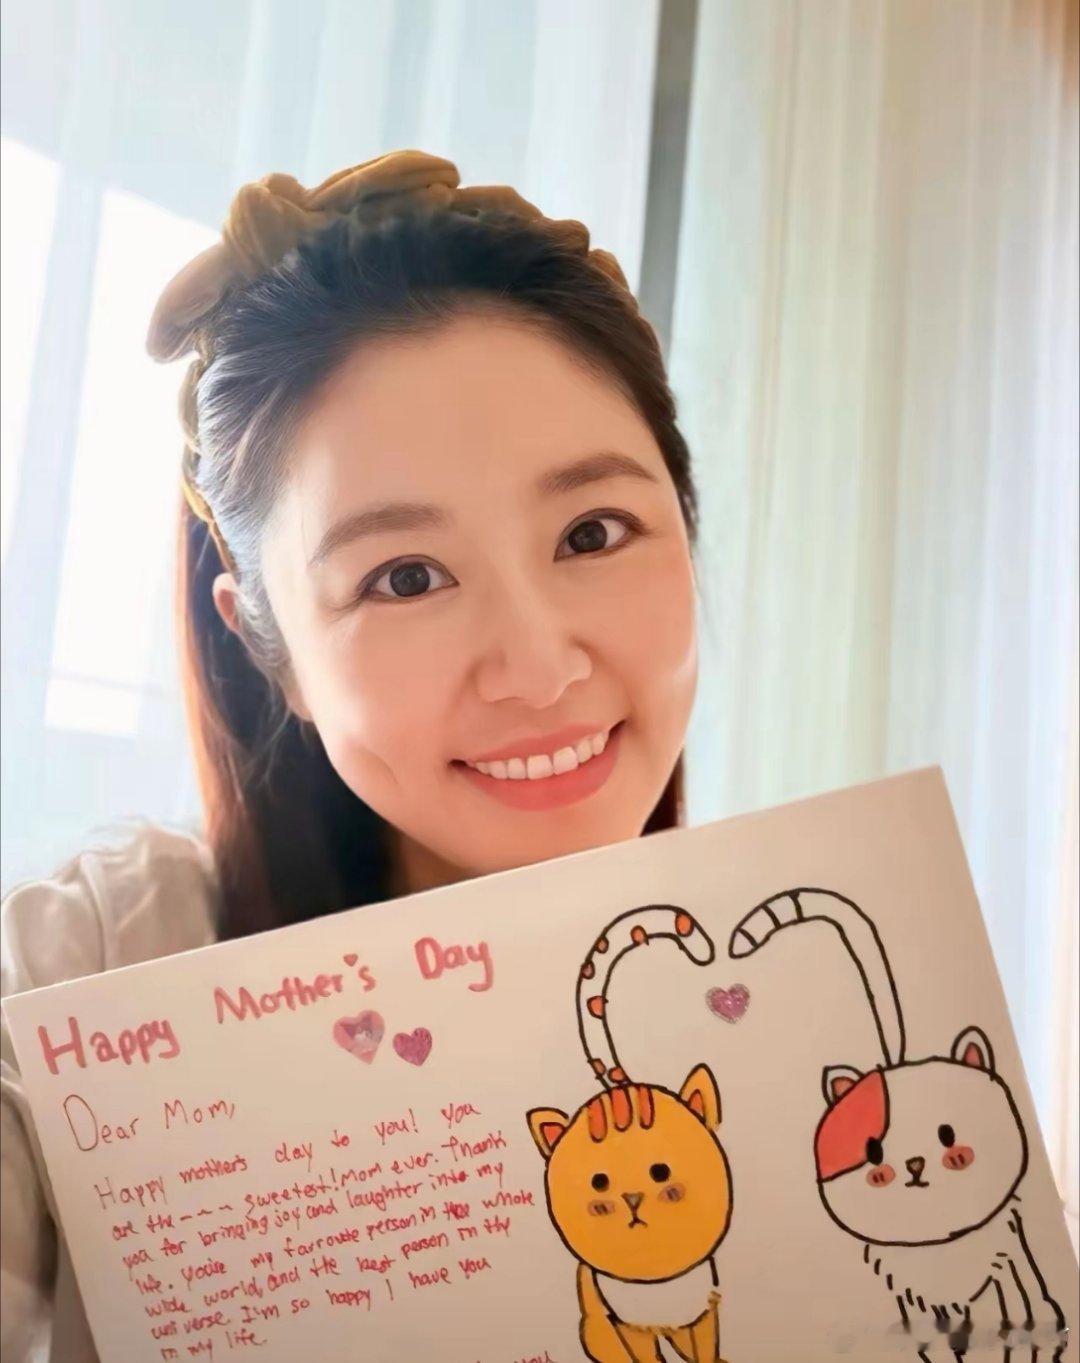 Happy Mother's Day
Dear Mom,
Happy mother's day to you! you
are the ~~~ sweetest! Mom ever. Thank
you for bringing joy and laughter into my
life. You're my favroute person in the whole
wide world, and the best person in the
universe. I'm so happy I have you
in my life.
you